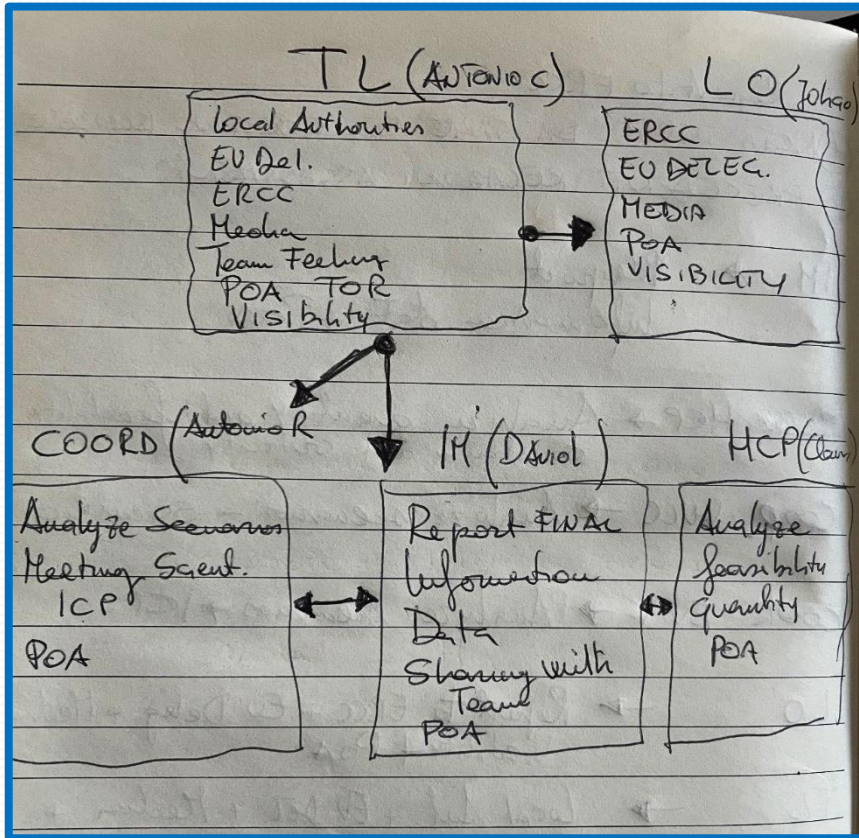 TL (ANTONIO C)
Local Authorities
EU Del.
ERCC
Media
Team Feeling
POA TOR
Visibility
LO (Johao)
ERCC
EU DELEG.
MEDIA
POA
VISIBILITY
COORD (Antonio R
Analyze Scenarios
Meeting Scient.
ICP
POA
IM (David)
Report FINAL
Information
Data
Sharing with
Team
POA
HCP
Analyze
feasibility
quantity
POA